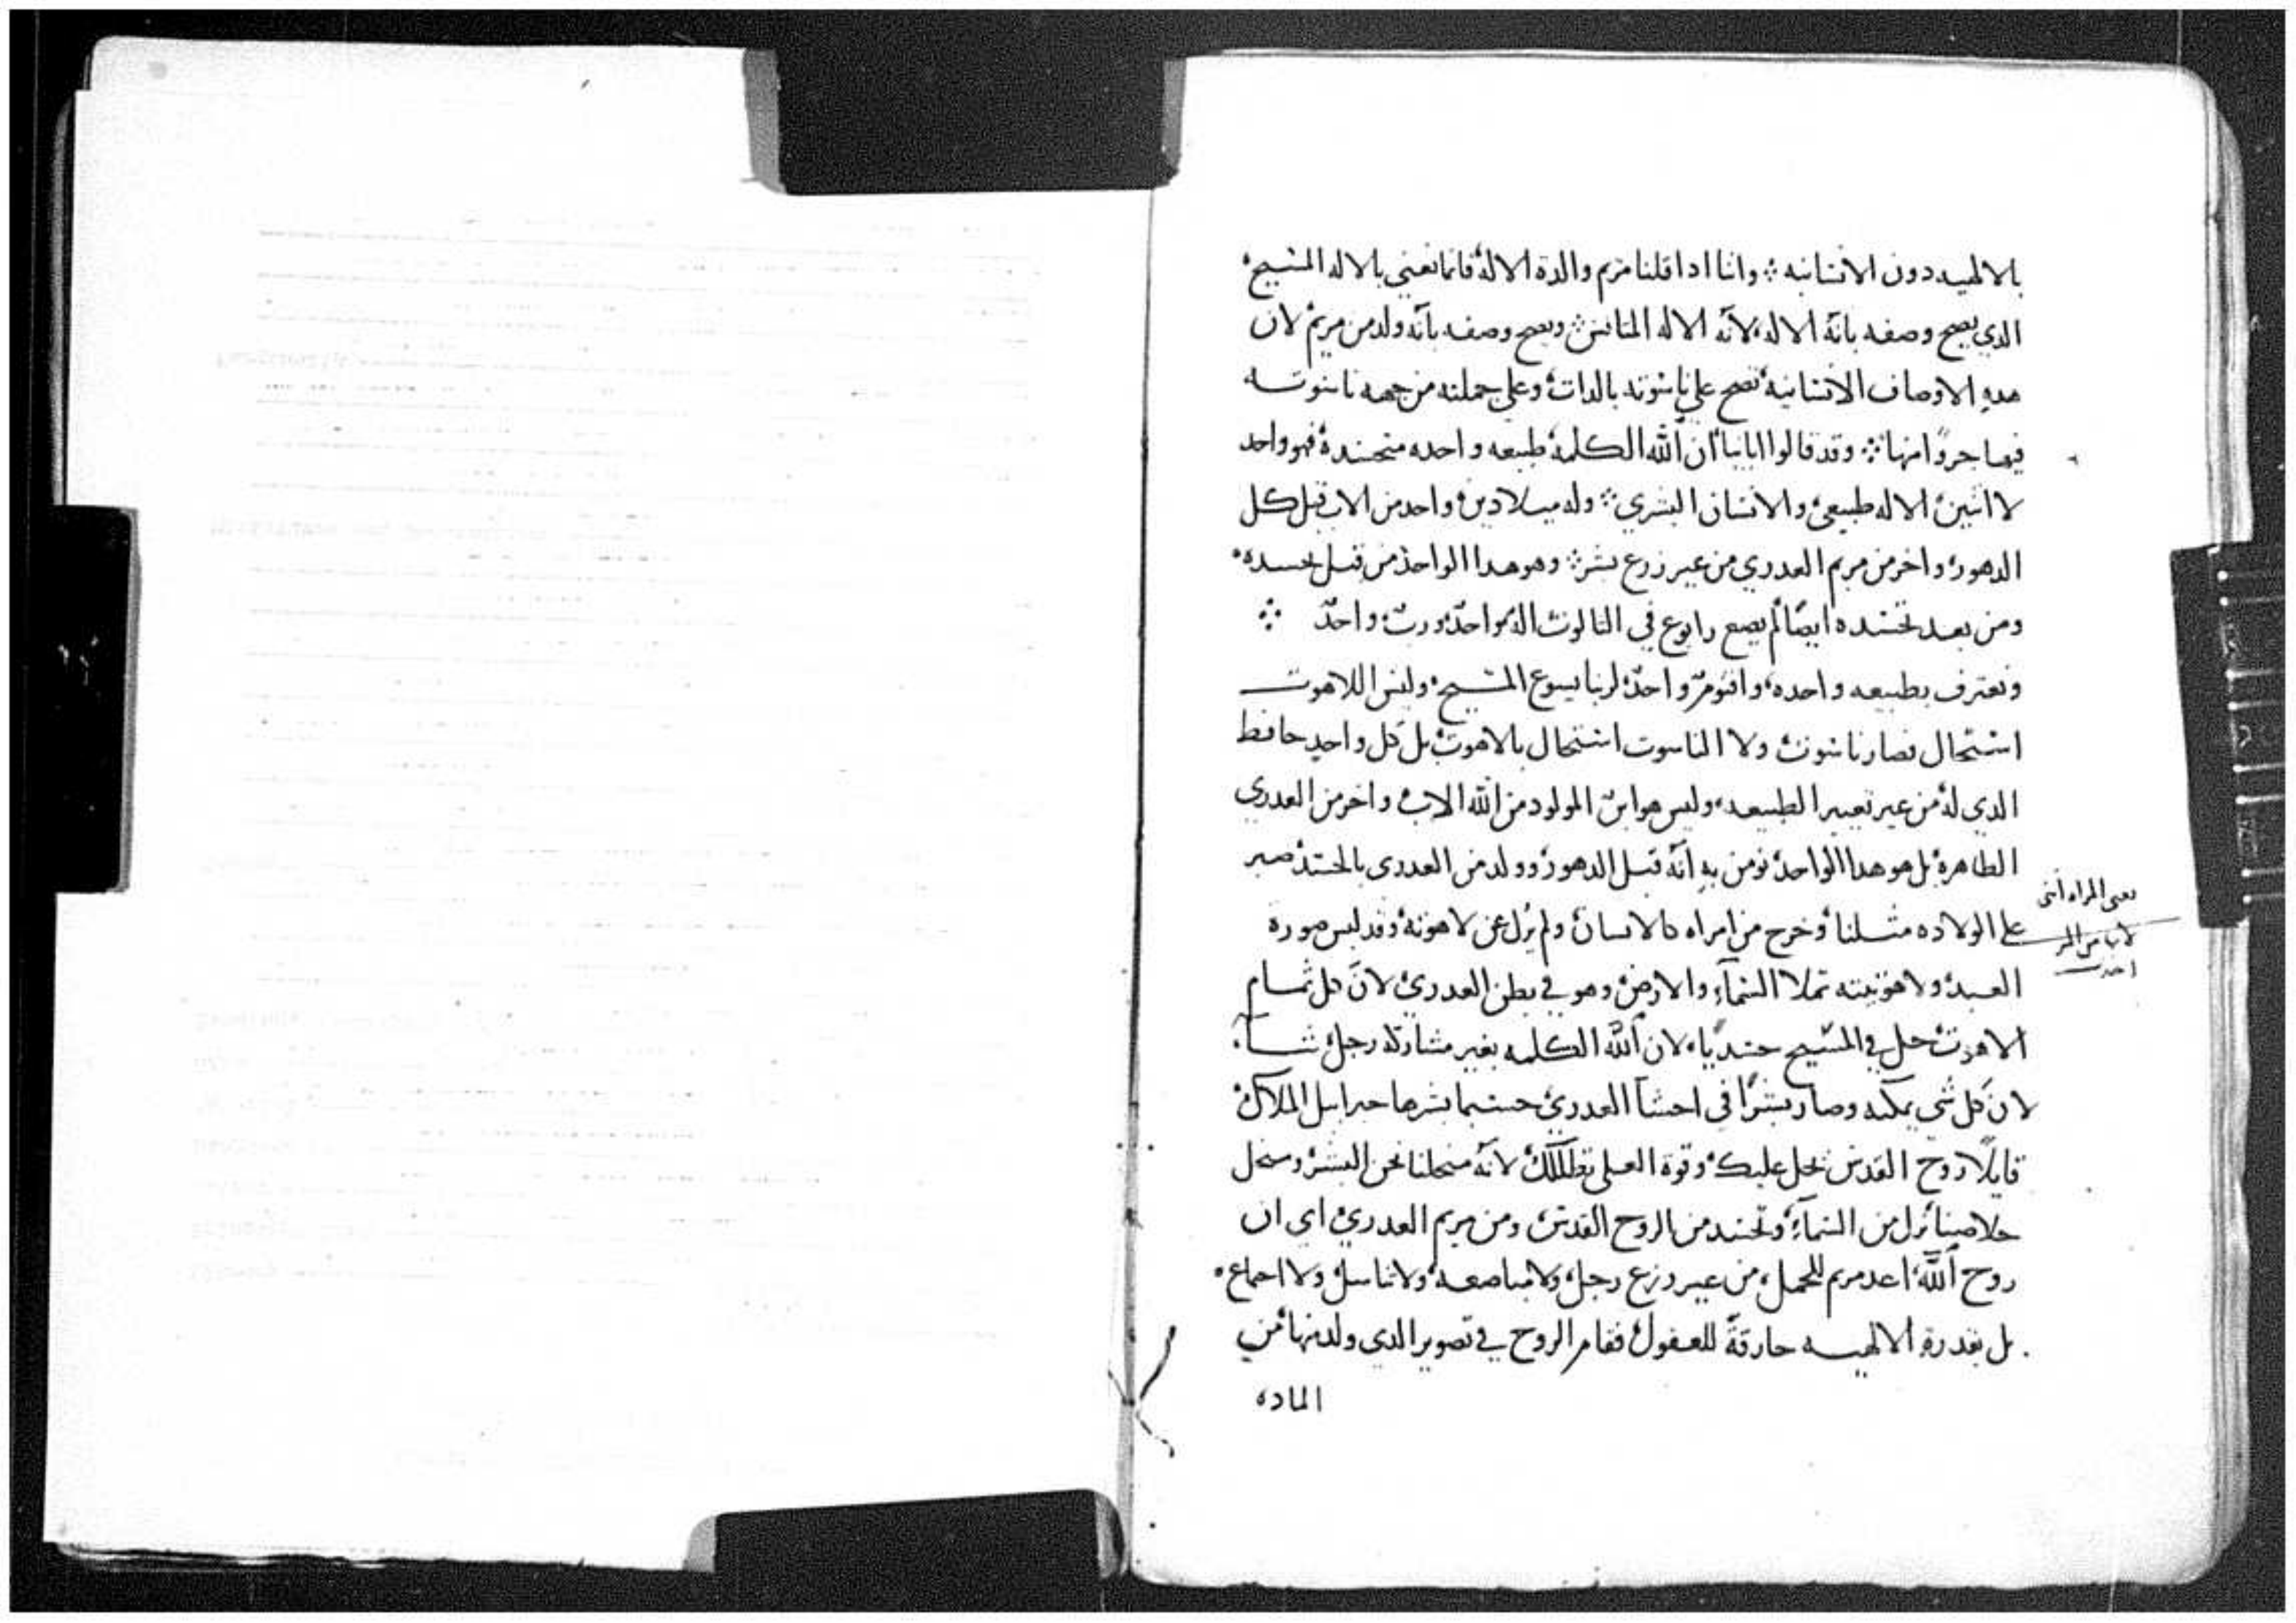 بالالهيه دون الانسانيه ؞ وانا ادا قلنا مريم والدة الاله فانما نعني بالاله المسيح
الدي يصح وصفه بانه الاله، لانه الاله المتانس ؞ ويصح وصفه بانه ولد من مريم لان
هده الاوصاف الانسانيه تصح علي ناسوته بالدات وعلي جملته من جهه ناسوته
فيها جروًا منها ؞ وقد قالوا ابانا ان الله الكلمه طبيعه واحده متجسده فهو واحد
لا اتنين الاله طبيعي والانسان البشري ؞ وله ميلادين واحد من الاب قبل كل
الدهور واخر من مريم العدري من غير زرع بشر ؞ وهو هدا الواحد من قبل تجسده
ومن بعد تجسده ايضًا لم يصع رابوع في التالوت اله واحدٌ ورب واحدٌ ؞
ونعترف بطبيعه واحده، واقنومٌ واحدٌ لربنا يسوع المسيح وليس اللاهوت
استحال فصار ناسوت ولا الناسوت استحال بالاهوت بل كل واحدٍ حافظ
الدي له من غير تغيير الطبيعه، وليس هو ابن المولود من الله الاب واخر من العدري
الطاهره بل هو هدا الواحد نومن به انه قبل الدهور وولد من العدري بالجسد صبر
علي الولاده مثلنا وخرج من امراه كالانسان ولم يزل عن لاهوته وقد لبس صورة
العبد ولاهوتيته تملا السماءِ والارض وهو في بطن العدري لان كل تمام
الاهوت حل في المسيح جسديًا، لان الله الكلمه بغير مشاركة رجل شاء
لان كل شي يمكنه وصار بشرًا في احشا العدري حسبما بشرها جبراييل الملاك
قايلًا روح القدس تحل عليك وقوة العلي تظللك لانه من اجلنا نحن البشر ومن اجل
خلاصنا نزل من السماءِ وتجسد من الروح القدس ومن مريم العدري اي ان
روح الله اعد مريم للحمل، من غير زرع رجل ولا مباضعه ولا تناسل ولا اجماع
بل بقدرةِ الالهيه خارقة للعقول فقام الروح في تصوير الدي ولد منها من
الماده
يعني المراه انتي
لانها من المر
اخدت